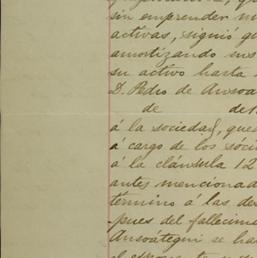 sin emprender nu
activas, siguió qu
amortizando sus
su activo hasta
D. Pedro de Ansoá
de de 1
á la sociedad, que
á cargo de los soci
á la cláusula 12
antes mencionad
término á las de
pues del fallecim
Ansoátegui se has